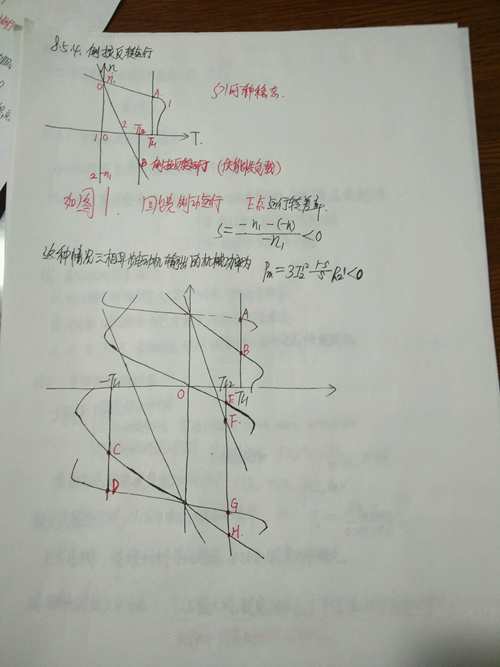 8.5.4. 倒拉反转运行
n
n₁
0
A
1
S>1时种稳点.
2
TL2
TL1
T.
1
0
B 倒拉反转运行 (位能性负载)
2 -n₁
如图1. 回馈制动运行 E点运行转差率
S = -n₁-(-n) / -n₁ < 0
这种情况三相异步电动机输出的机械功率为 Pm = 3I₂'² 1-S/S R₂' < 0
A
B
0
-TL1
TL2
TL1
E
F.
C
D
G
H.